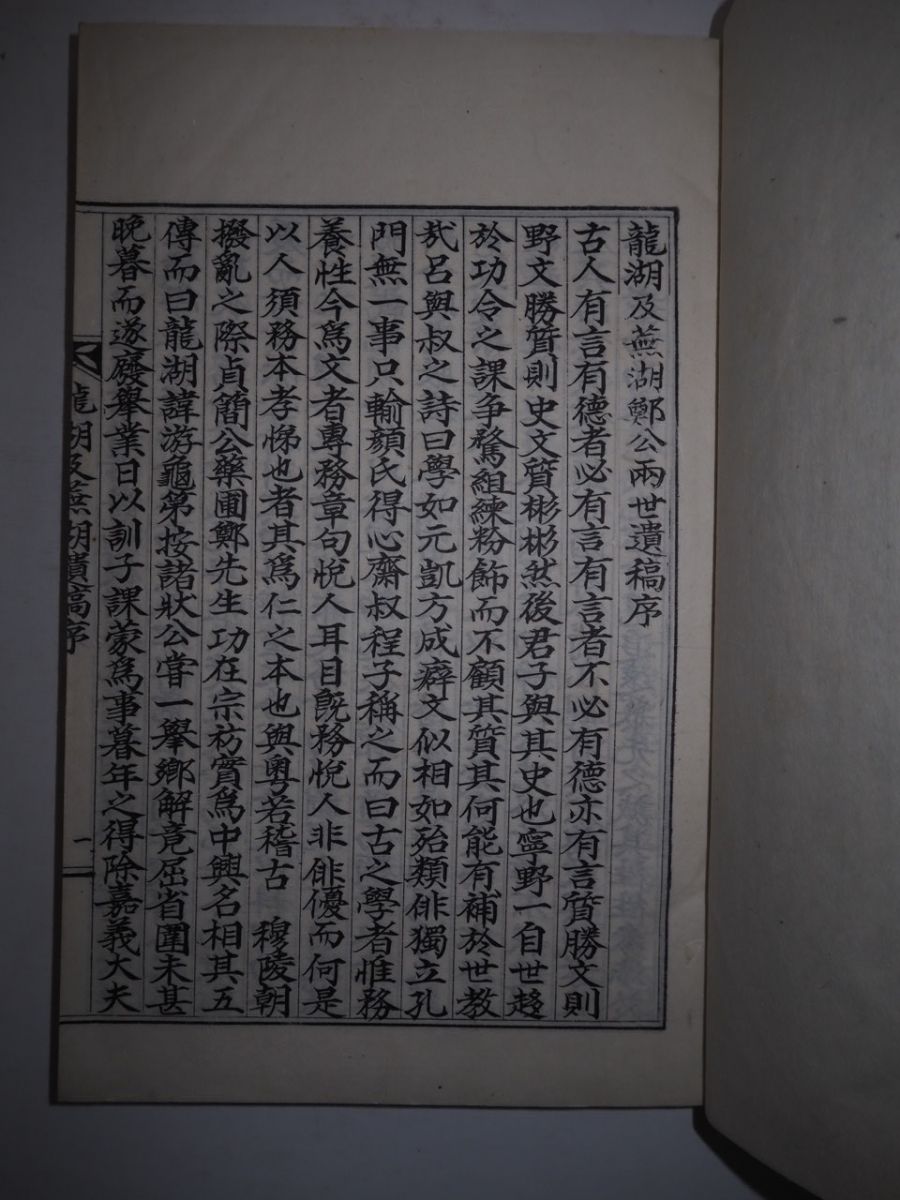 龍湖及蕪湖鄭公兩世遺稿序
古人有言有德者必有言有言者不必有德亦有言質勝文則
野文勝質則史文質彬彬然後君子與其史也寧野一自世趍
於功令之課爭騖組練粉飾而不顧其質其何能有補於世教
㢤呂與叔之詩曰學如元凱方成癖文似相如殆類俳獨立孔
門無一事只輸顏氏得心齋叔程子稱之而曰古之學者惟務
養性今爲文者專務章句悅人耳目旣務悅人非俳優而何是
以人須務本孝悌也者其爲仁之本也與粤若稽古　穆陵朝
撥亂之際貞簡公藥圃鄭先生功在宗祊實爲中興名相其五
傳而曰龍湖諱游龜第按諸狀公甞一擧鄕解竟屈省圍未甚
晩暮而遂廢擧業日以訓子課蒙爲事暮年之得除嘉義大夫
龍湖及蕪湖遺稿序
一